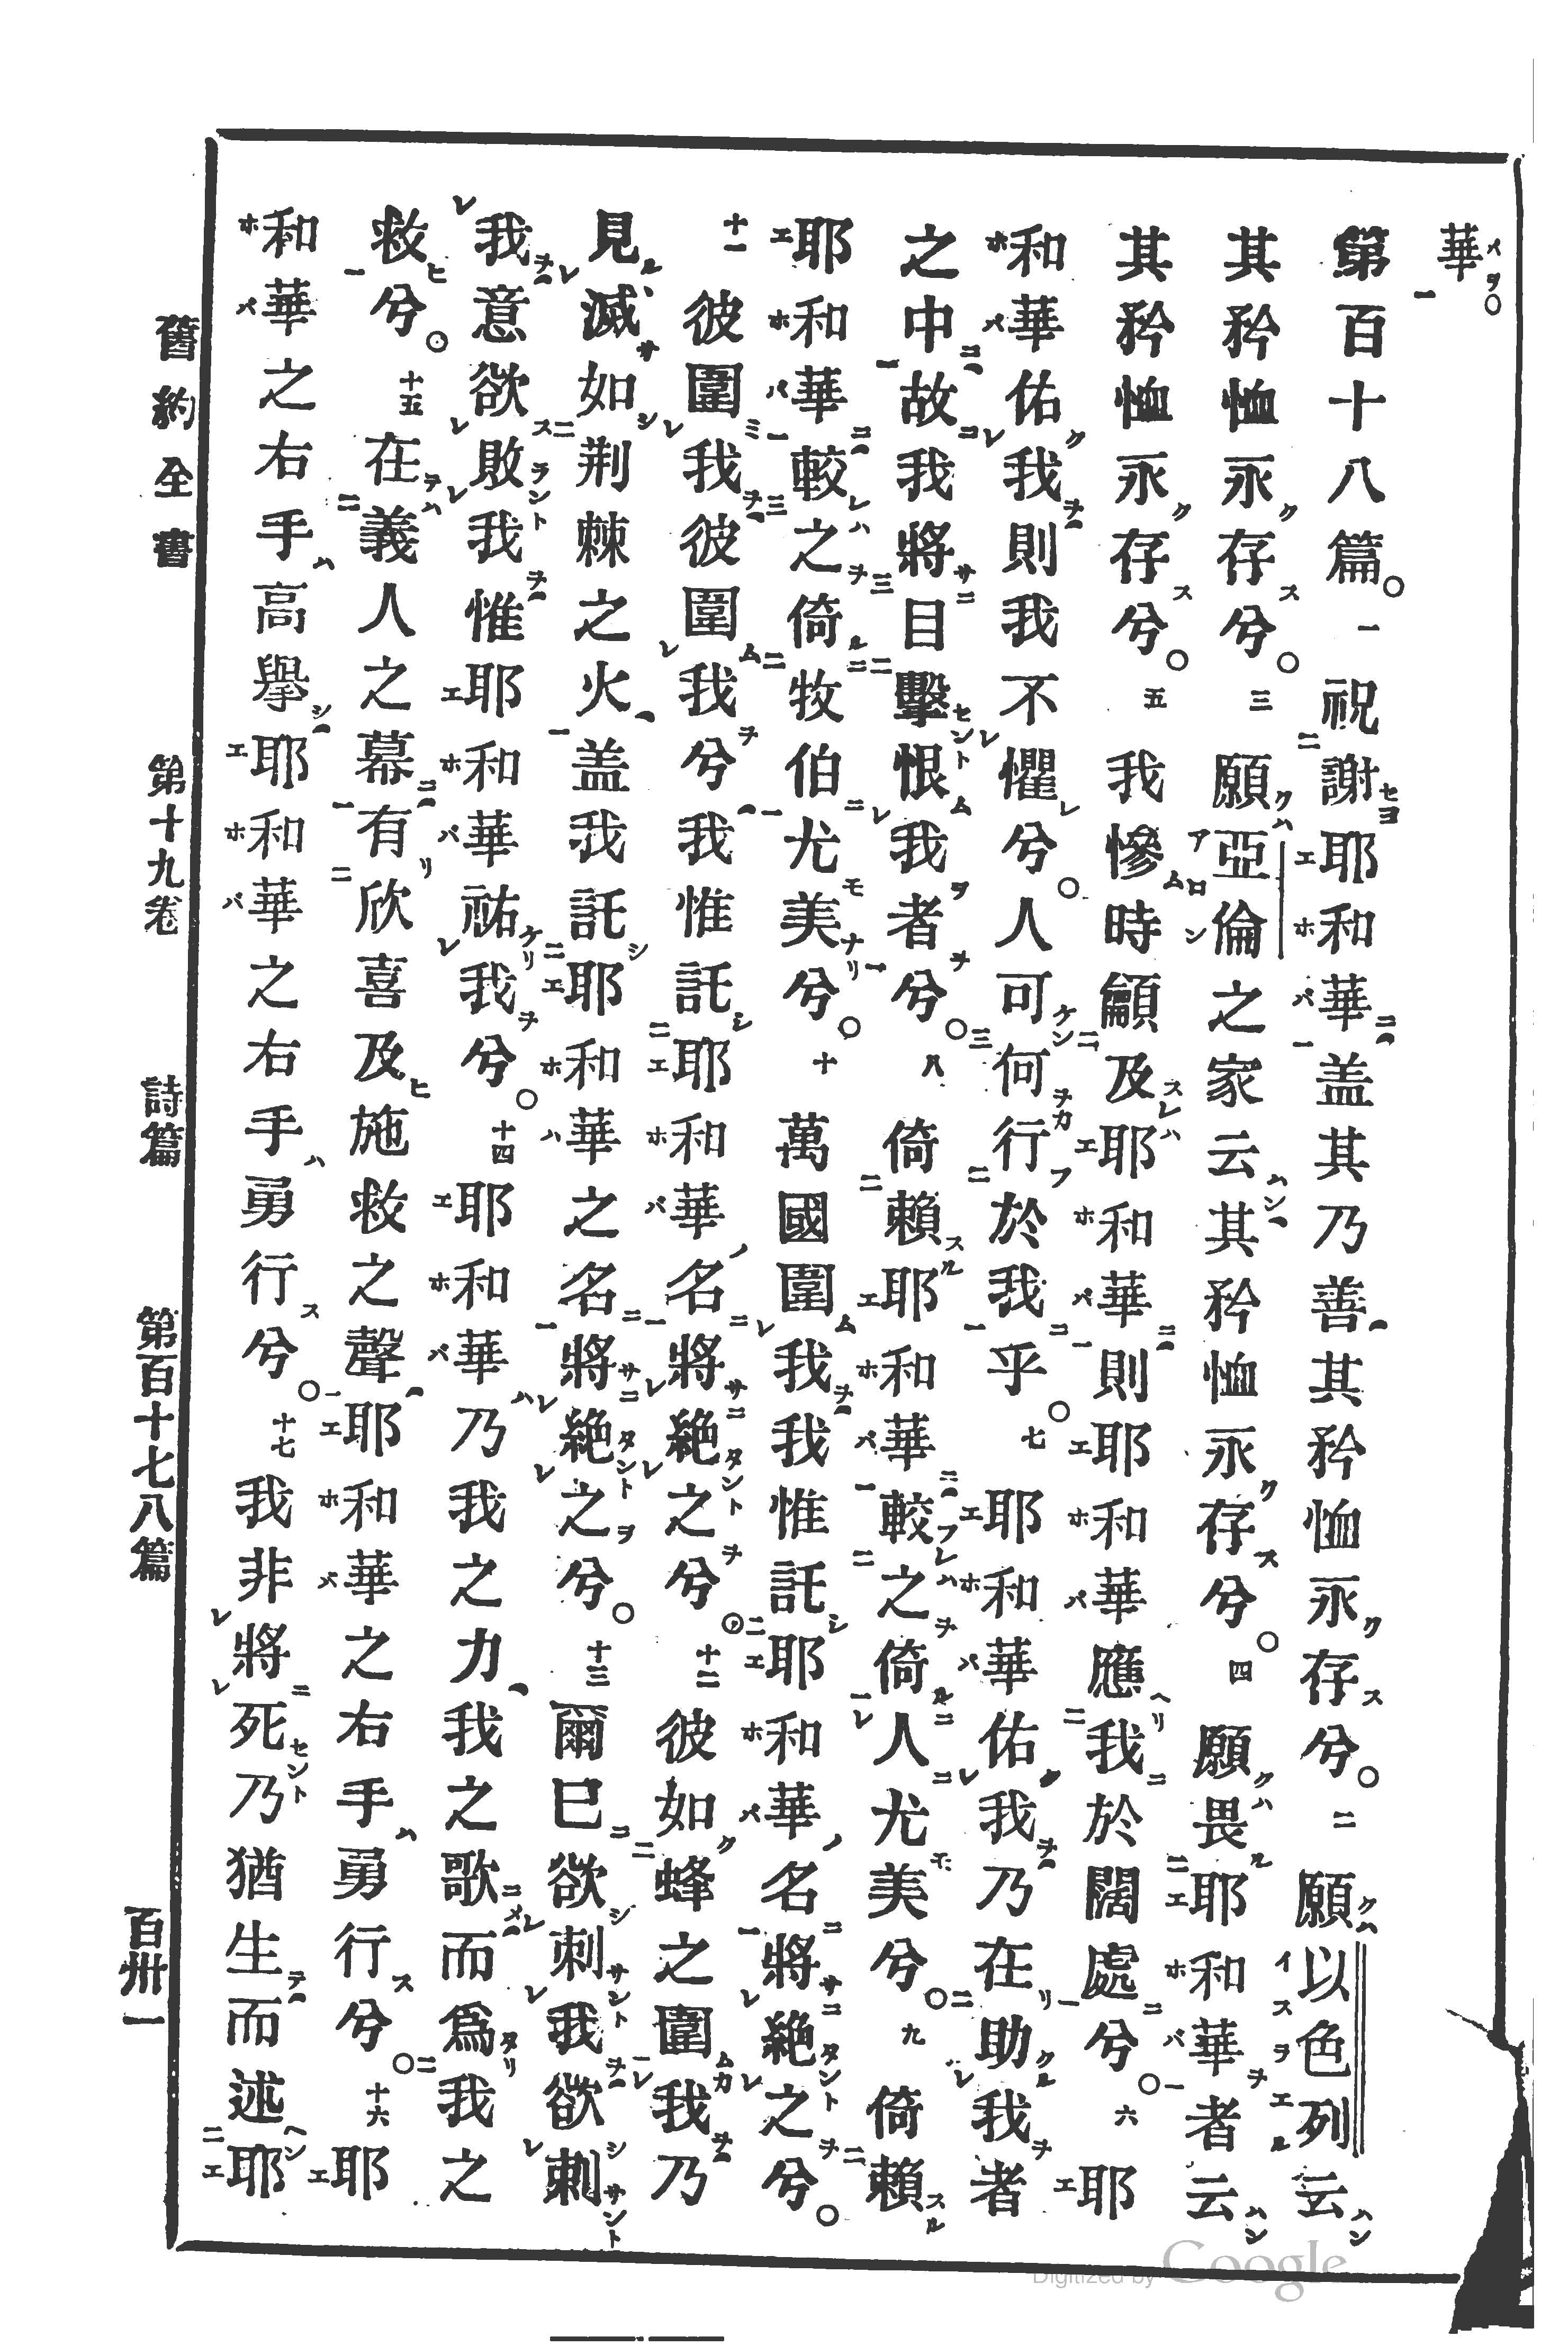 華
第百十八篇。一祝謝耶和華盖其乃善其矜恤永存兮。二願以色列云
其矜恤永存兮。三願亞倫之家云其矜恤永存兮。四願畏耶和華者云
其矜恤永存兮。五我慘時籲及耶和華則耶和華應我於闊處兮。六耶
和華佑我則我不懼兮。人可何行於我乎。七耶和華佑我乃在助我者
之中故我將目擊恨我者兮。八倚賴耶和華較之倚人尤美兮。九倚賴
耶和華較之倚牧伯尤美兮。十萬國圍我我惟託耶和華名將絶之兮。
十一彼圍我彼圍我兮我惟託耶和華名將絶之兮。十二彼如蜂之圍我乃
見滅如荆棘之火盖我託耶和華之名將絶之兮。十三爾已欲刺我欲刺
我意欲敗我惟耶和華祐我兮。十四耶和華乃我之力我之歌而爲我之
救兮。十五在義人之幕有欣喜及施救之聲耶和華之右手勇行兮。十六耶
和華之右手高擧耶和華之右手勇行兮。十七我非將死乃猶生而述耶
舊約全書 第十九卷 詩篇 第百十七八篇 百卅一
Digitized by Google